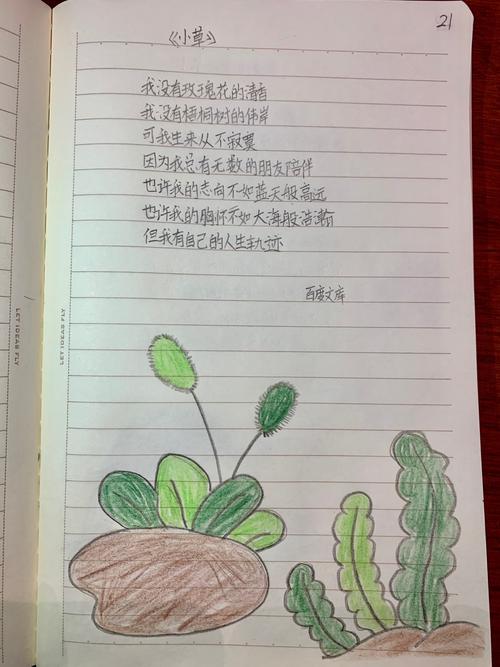 21
《小草》
我没有玫瑰花的清香
我没有梧桐树的伟岸
可我生来从不寂寞
因为我总有无数的朋友陪伴
也许我的志向不如蓝天般高远
也许我的胸怀不如大海般浩瀚
但我有自己的人生轨迹
百度文库
LET IDEAS FLY
LET IDEAS FLY